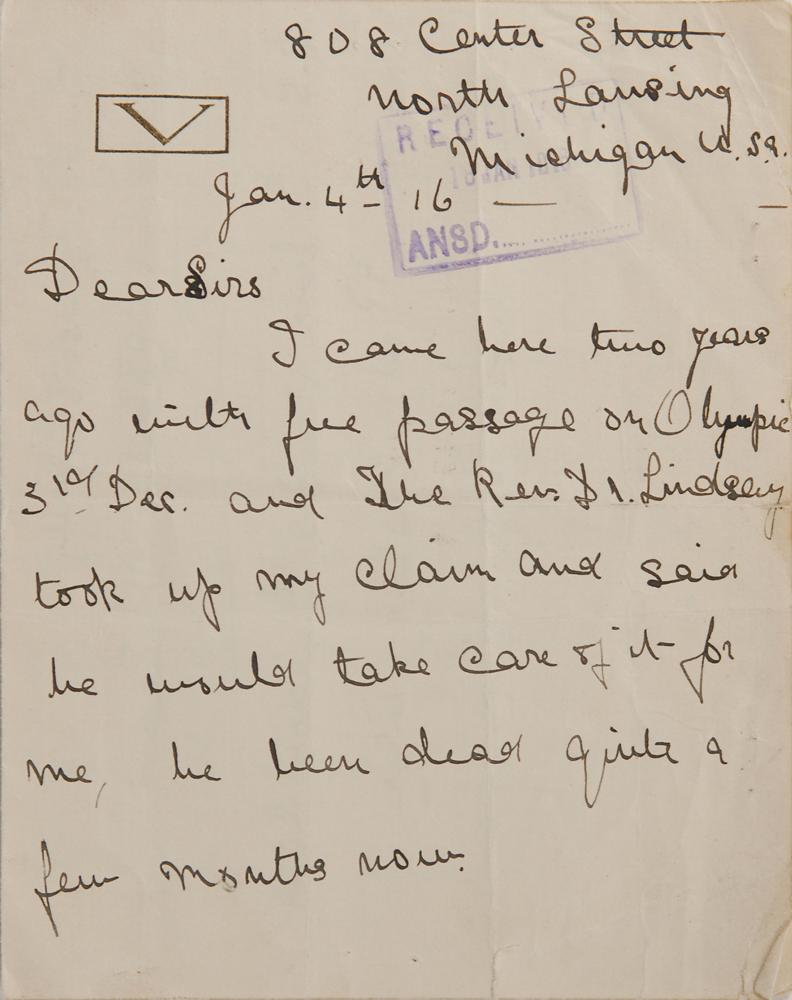 808 Center Street
North Lansing
V
RECEIVED
Michigan U.S.A.
Jan. 4th 16 —
ANSD.
Dear Sirs
I came here two years
ago with free passage on Olympic
3rd Dec. and The Rev. Dr. Lindsay
took up my claim and said
he would take care of it for
me, he been dead quite a
few months now.